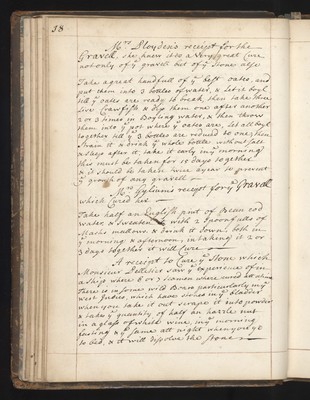 58
Mrs Ploydens receipt for the
Gravell, she knew it do a Very great Cure
not only of ye gravell but of ye Stone allso
Take a great handfull of ye best oates, and
put them into 3 bottles of water, & let it boyl
till ye oates are ready to break, then take three
live Crawfish & dip them one after another
2 or 3 times in Boyling water, & then throw
them into ye pot where ye oates are, let all boyl
together till ye 3 bottles are reduced to one, then
strain it & drink ye whole bottle without fail
& sleep after it, take it early in ye morning
this must be taken for 15 days together
& it should be taken twice a year to prevent
ye growth of any gravell
Mrs receipt for ye Gravell
which Cured her
Take half an English pint of
water & Sweeten with 2 spoonfulls of
Marshmallows & drink it down, both in
ye morning & afternoon, in taking it 2 or
3 days together it will Cure you
A receipt to Cure ye Stone which
Monsieur Pelletier saw ye experience of in
a Ship where 6 or 7 seamen where cured
There is in some wild Boars particularly in ye
West Indies, which have stones in ye bladder
when you take it out scrape it into powder
& take ye quantity of half an hazzle nut
in a glass of white wine, in ye morning
fasting & ye same att night when you go
to bed, & it will dissolve the stone